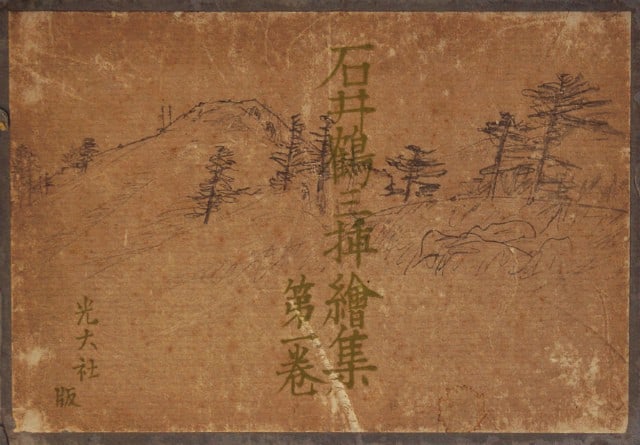 石井鶴三挿繪集
第一巻
光大社版